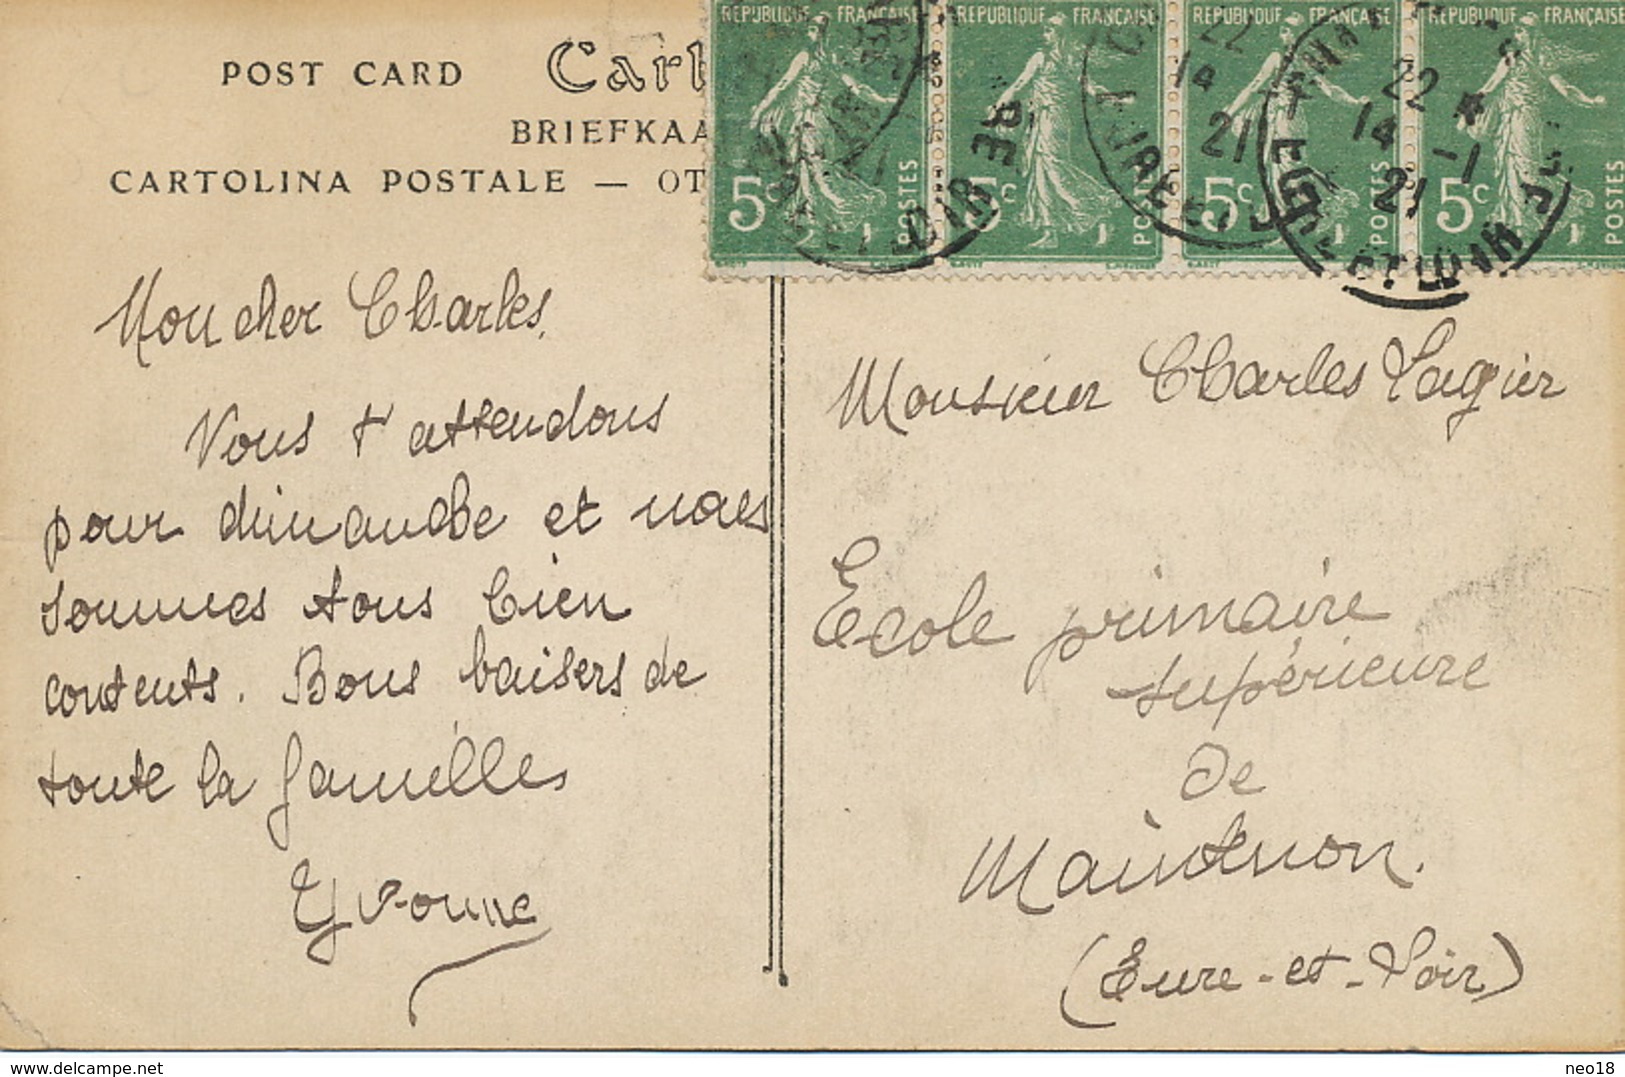 POST CARD Cart
BRIEFKAA
CARTOLINA POSTALE — OT
REPUBLIQUE FRANÇAISE
5c POSTES
REPUBLIQUE FRANÇAISE
5c POSTES
REPUBLIQUE FRANÇAISE
5c POSTES
REPUBLIQUE FRANÇAISE
5c POSTES
22
14
21
22
14 -1
21
EURE ET LOIR
Mon cher Charles,
Nous t'attendons
pour dimanche et nous
sommes tous bien
contents. Bons baisers de
toute la familles
Yvonne
Monsieur Charles Lagier
Ecole primaire
supérieure
de
Maintenon.
(Eure-et-Loir)
www.delcampe.net
neo18